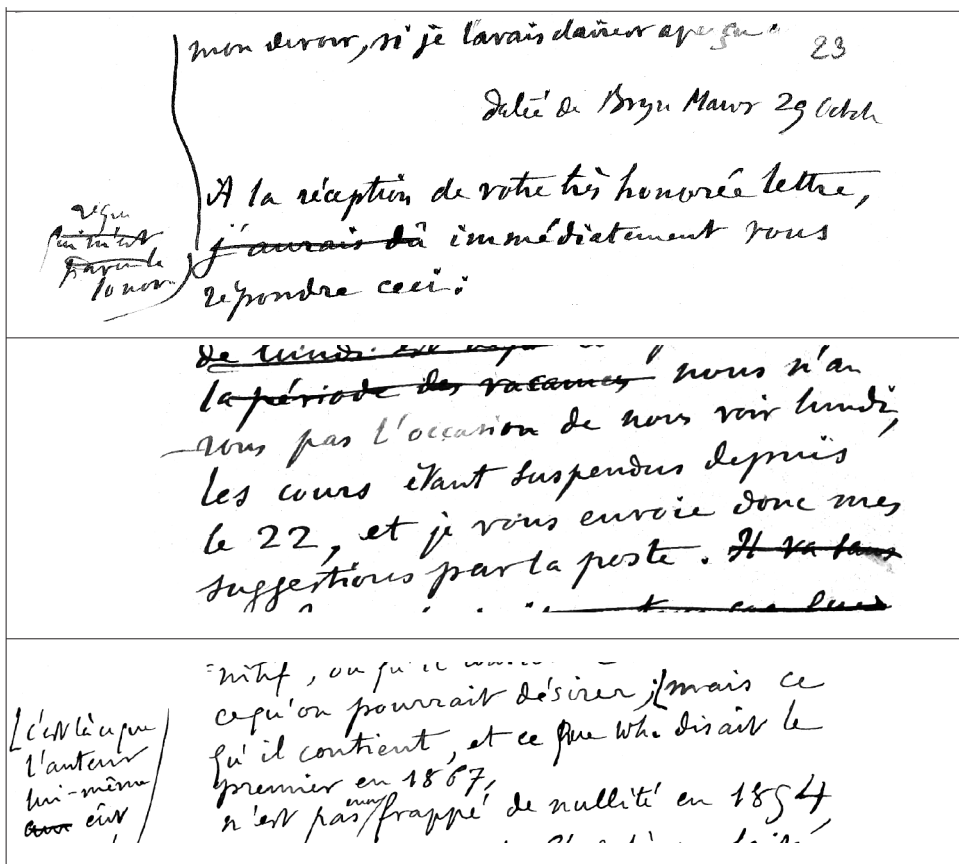 mon devoir, si je l'avais clairer aperçu.
23
datée de Bryn Mawr 29 Octob
A la réception de votre très honorée lettre,
j'aurais dû immédiatement vous
répondre ceci:
reçu
qui m'est
parvenue
de la période des vacances nous n'au
rons pas l'occasion de nous voir lundi,
les cours étant suspendus depuis
le 22, et je vous envoie donc mes
suggestions par la poste. Il va sans
nitif, ou qu'il
ce qu'on pourrait désirer; [mais ce
qu'il contient, et ce que Wh. disait le
premier en 1867,
n'est pas frappé de nullité en 1894
[c'est là ce que
l'auteur
lui-même
eût